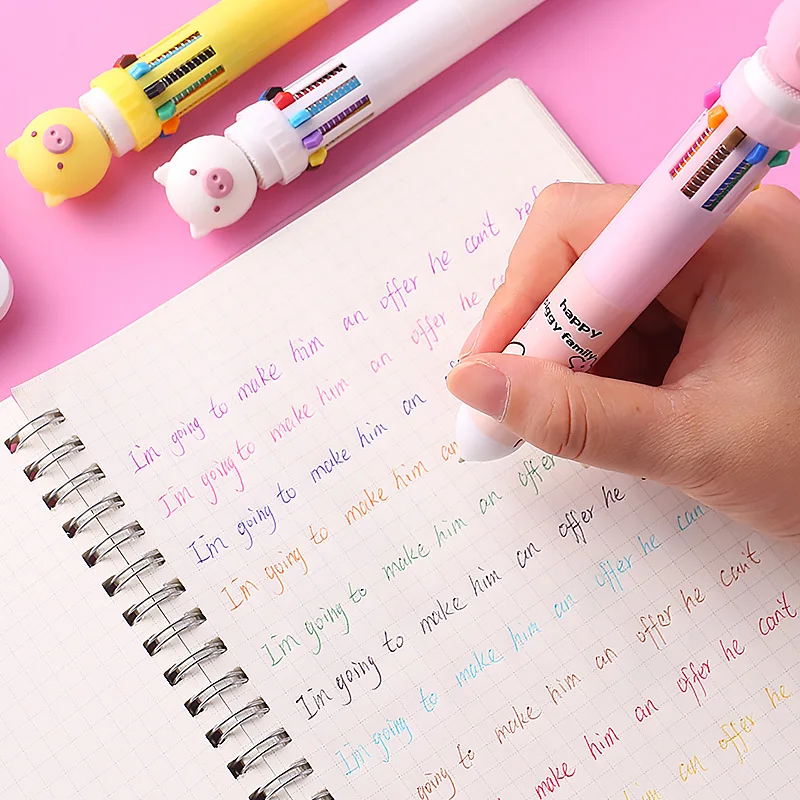 I'm going to make him an offer he can't
I'm going to make him an offer he
I'm going to make him an
I'm going to make him an
I'm going to make him an offer
I'm going to make him an offer he
I'm going to make him an offer he can't
going to make him an offer he can't
make him an offer he can't
him an offer he
happy
piggy family